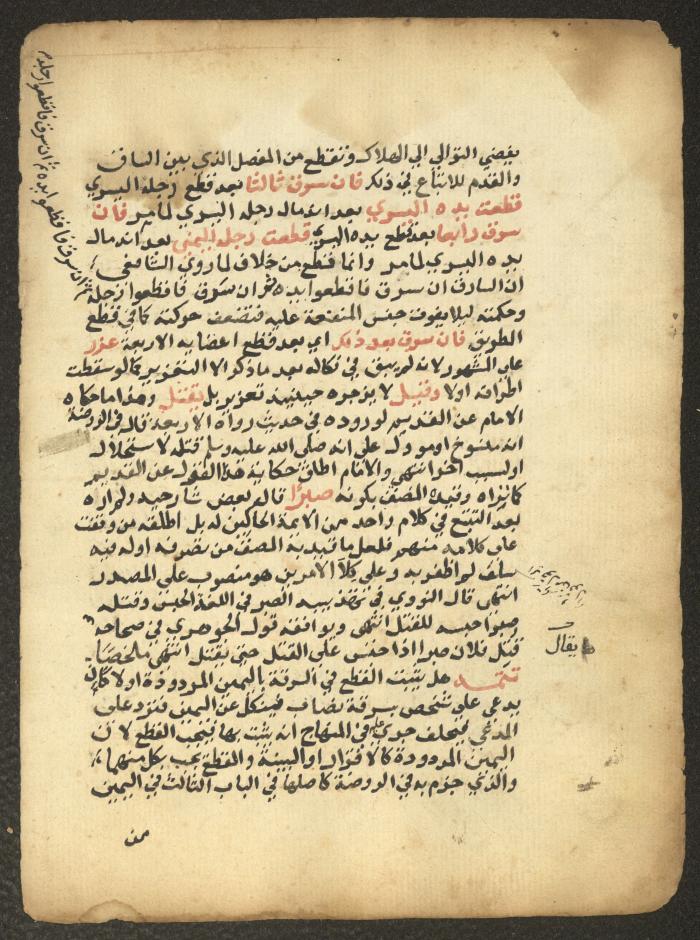 يفضي التوالي الى الهلاك وتقطع من المفصل الذي بين الساق
والقدم للاتباع في ذلك فان سرق ثالثا بعد قطع رجله اليسري
قطعت يده اليسري بعد اندمال رجله اليسري لما مر فان
سرق رابعا بعد قطع يده اليسري قطعت رجله اليمني بعد اندمال
يده اليسري لما مر وانما قطع من خلاف لما روي الشافعي
ان السارق ان سرق فاقطعوا يده ثم ان سرق فاقطعوا رجله
وحكمته ليلا يفوت جنس المنفعة عليه فتضعف حركته كما في قطع
الطريق فان سرق بعد ذلك اي بعد قطع اعضايه الاربعة عزر
على المشهور لانه لم يبق في نكاله بعد ما ذكر الا التعزير كما لو سقطت
اطرافه اولا وقيل لا يزجره حينيذ تعزير بل يقتل وهذا ما حكاه
الامام عن القديم لوروده في حديث رواه الاربعة قال في الروضة
انه منسوخ او مؤول على انه صلى الله عليه وسلم قتله لاستحلال
او لسبب اخر انتهي والامام اطلق حكاية هذا القول عن القديم
كما تراه وقيده المصنف بكونه صبرا قال بعض شارحيه ولم اره
بعد التتبع في كلام واحد من الايمة الحاكين له بل اطلقه من وقفت
على كلامه منهم فلعل ما قيد به المصنف من تصرفه اوله فيه
سلف لم اظفر به وعلى كلا الامرين هو منصوب على المصدر
انتهى قال النووي في تهذيبه الصبر في اللغة الحبس وقتله
صبرا حبسه للقتل انتهى ويوافقه قول الجوهري في صحاحه
يقال
قتل فلان صبرا اذا حبس على القتل حتى يقتل انتهى ملخصا
تتمـة هل يثبت القطع في السرقة باليمين المردودة اولا كان
يدعي على شخص سرقة نصاب فينكل عن اليمين فترد على
المدعي فيحلف جري في المنهاج انه يثبت بها فيجب القطع لان
اليمين المردودة كالاقرار او البينة والقطع يجب بكل منهما
والذي جزم به في الروضة كاصلها في الباب الثالث في اليمين
من
ثم ان سرق فاقطعوا يده ثم ان سرق فاقطعوا رجله